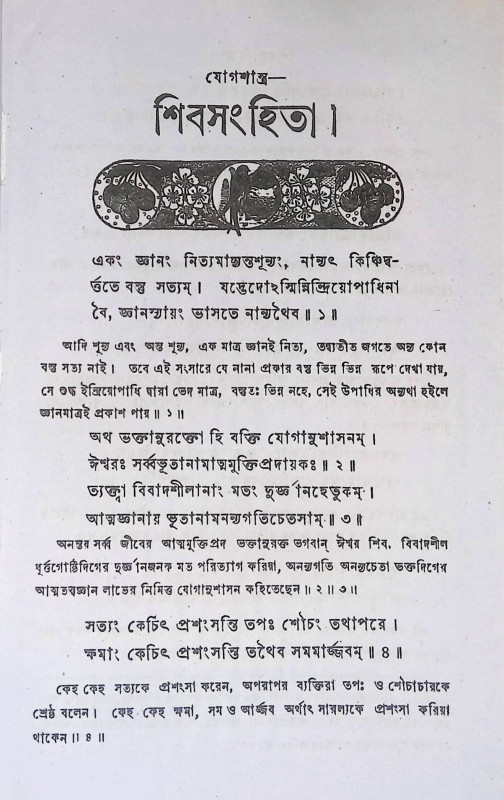 যোগশাস্ত্র—
শিবসংহিতা।
একং জ্ঞানং নিত্যমাদ্যন্তশূন্যং, নান্যৎ কিঞ্চিদ্ব-
র্ত্ততে বস্তু সত্যম্। যদ্ভেদোঽস্মিন্নিন্দ্রিয়োপাধিনা
বৈ, জ্ঞানস্যায়ং ভাসতে নান্যথৈব॥ ১॥
আদি শূন্য এবং অন্ত শূন্য, এক মাত্র জ্ঞানই নিত্য, তদ্ব্যতীত জগতে অন্য কোন
বস্তু সত্য নাই। তবে এই সংসারে যে নানা প্রকার বস্তু ভিন্ন ভিন্ন রূপে দেখা যায়,
সে শুদ্ধ ইন্দ্রিয়োপাধি দ্বারা ভেদ মাত্র, বস্তুতঃ ভিন্ন নহে, সেই উপাধির অন্যথা হইলে
জ্ঞানমাত্রই প্রকাশ পায়॥ ১॥
অথ ভক্তানুরক্তো হি বক্তি যোগানুশাসনম্।
ঈশ্বরঃ সর্ব্বভূতানামাত্মমুক্তিপ্রদায়কঃ॥ ২॥
ত্যক্ত্বা বিবাদশীলানাং মতং দুর্জ্ঞানহেতুকম্।
আত্মজ্ঞানায় ভূতানামনন্যগতিচেতসাম্॥ ৩॥
অনন্তর সর্ব্ব জীবের আত্মমুক্তিপ্রদ ভক্তানুরক্ত ভগবান্ ঈশ্বর শিব, বিবাদশীল
ধূর্ত্তগোষ্টিদিগের দুর্জ্ঞানজনক মত পরিত্যাগ করিয়া, অনন্যগতি অনন্যচেতা ভক্তদিগের
আত্মতত্ত্বজ্ঞান লাভের নিমিত্ত যোগানুশাসন কহিতেছেন॥ ২॥ ৩॥
সত্যং কেচিৎ প্রশংসন্তি তপঃ শৌচং তথাপরে।
ক্ষমাং কেচিৎ প্রশংসন্তি তথৈব সমমার্জ্জবম্॥ ৪॥
কেহ কেহ সত্যকে প্রশংসা করেন, অপরাপর ব্যক্তিরা তপঃ ও শৌচাচারকে
শ্রেষ্ঠ বলেন। কেহ কেহ ক্ষমা, সম ও আর্জ্জব অর্থাৎ সারল্যকে প্রশংসা করিয়া
থাকেন॥ ৪॥